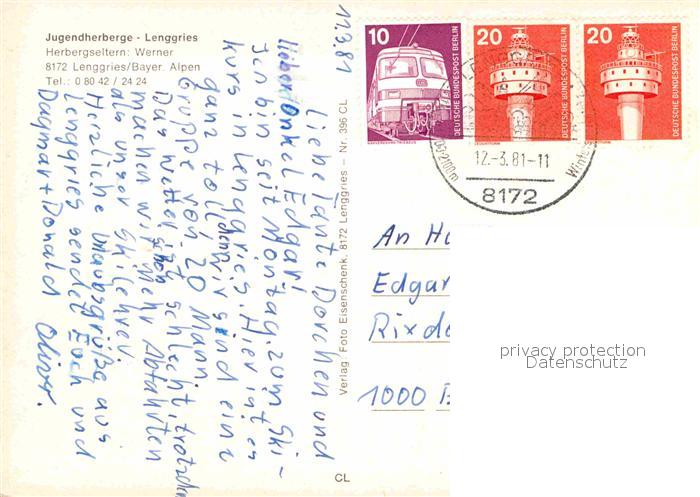 Jugendherberge - Lenggries
Herbergseltern: Werner
8172 Lenggries/Bayer. Alpen
Tel.: 0 80 42 / 24 24
11.3.81
Liebe Tante Dorchen und
lieber Onkel Edgar!
Ich bin seit Montag zum Ski-
kurs in Lenggries. Hier ist es
ganz toll, denn wir sind eine
Gruppe von 20 Mann.
Das Wetter ist schon schlecht, trotzdem
machen wir mehr Abfahrten
als unser Skilehrer.
Herzliche Urlaubsgrüße aus
Lenggries sendet Euch und
Dagmar + Donald Oliver.
Verlag: Foto Eisenschenk, 8172 Lenggries — Nr. 396 CL
CL
10
DEUTSCHE BUNDESPOST BERLIN
20
DEUTSCHE BUNDESPOST BERLIN
20
DEUTSCHE BUNDESPOST BERLIN
12.-3.81-11
8172
An
Edgar
1000
privacy protection
Datenschutz